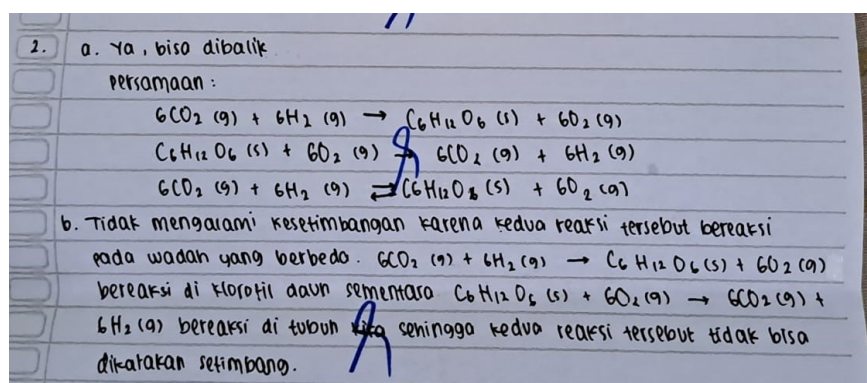 2. a. Ya, bisa dibalik
Persamaan :
6CO2 (g) + 6H2 (g) → C6H12O6 (s) + 6O2 (g)
C6H12O6 (s) + 6O2 (g) → 6CO2 (g) + 6H2 (g)
6CO2 (g) + 6H2 (g) ⇌ C6H12O6 (s) + 6O2 (g)
b. Tidak mengalami kesetimbangan karena kedua reaksi tersebut bereaksi
pada wadah yang berbeda. 6CO2 (g) + 6H2 (g) → C6H12O6 (s) + 6O2 (g)
bereaksi di klorofil daun sementara C6H12O6 (s) + 6O2 (g) → 6CO2 (g) +
6H2 (g) bereaksi di tubuh kita sehingga kedua reaksi tersebut tidak bisa
dikatakan setimbang.